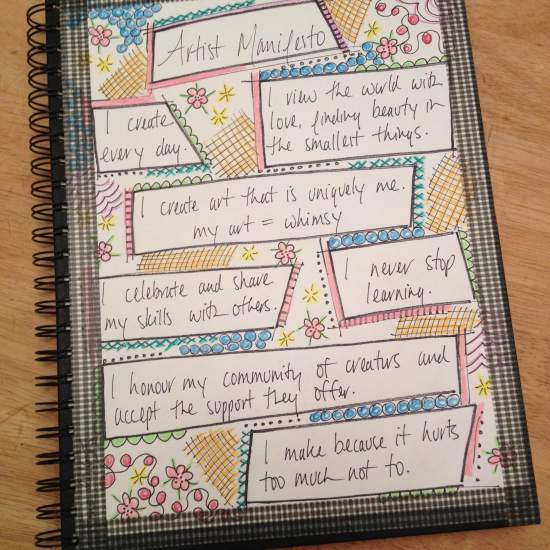 Artist Manifesto
I create
every day.
I view the world with
love, finding beauty in
the smallest things.
I create art that is uniquely me.
my art = whimsy
I celebrate and share
my skills with others.
I never stop
learning.
I honour my community of creators and
accept the support they offer.
I make because it hurts
too much not to.